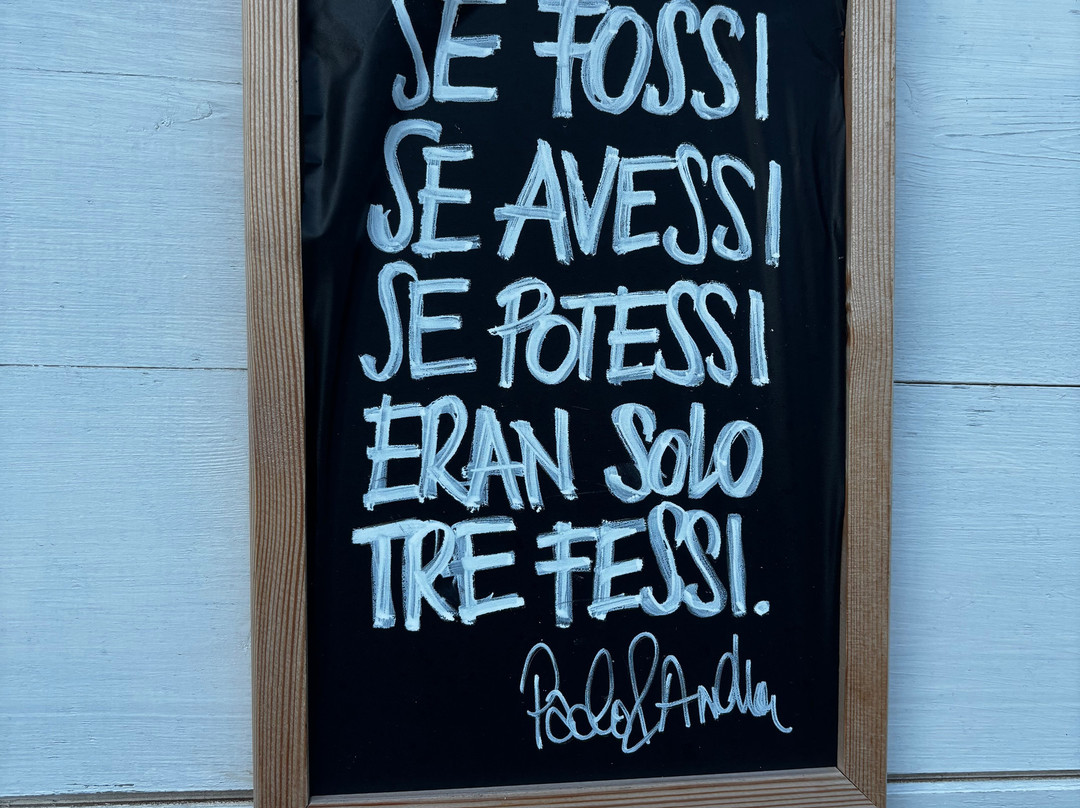 SE FOSSI
SE AVESSI
SE POTESSI
ERAN SOLO
TRE FESSI.
Paolo & Andrea